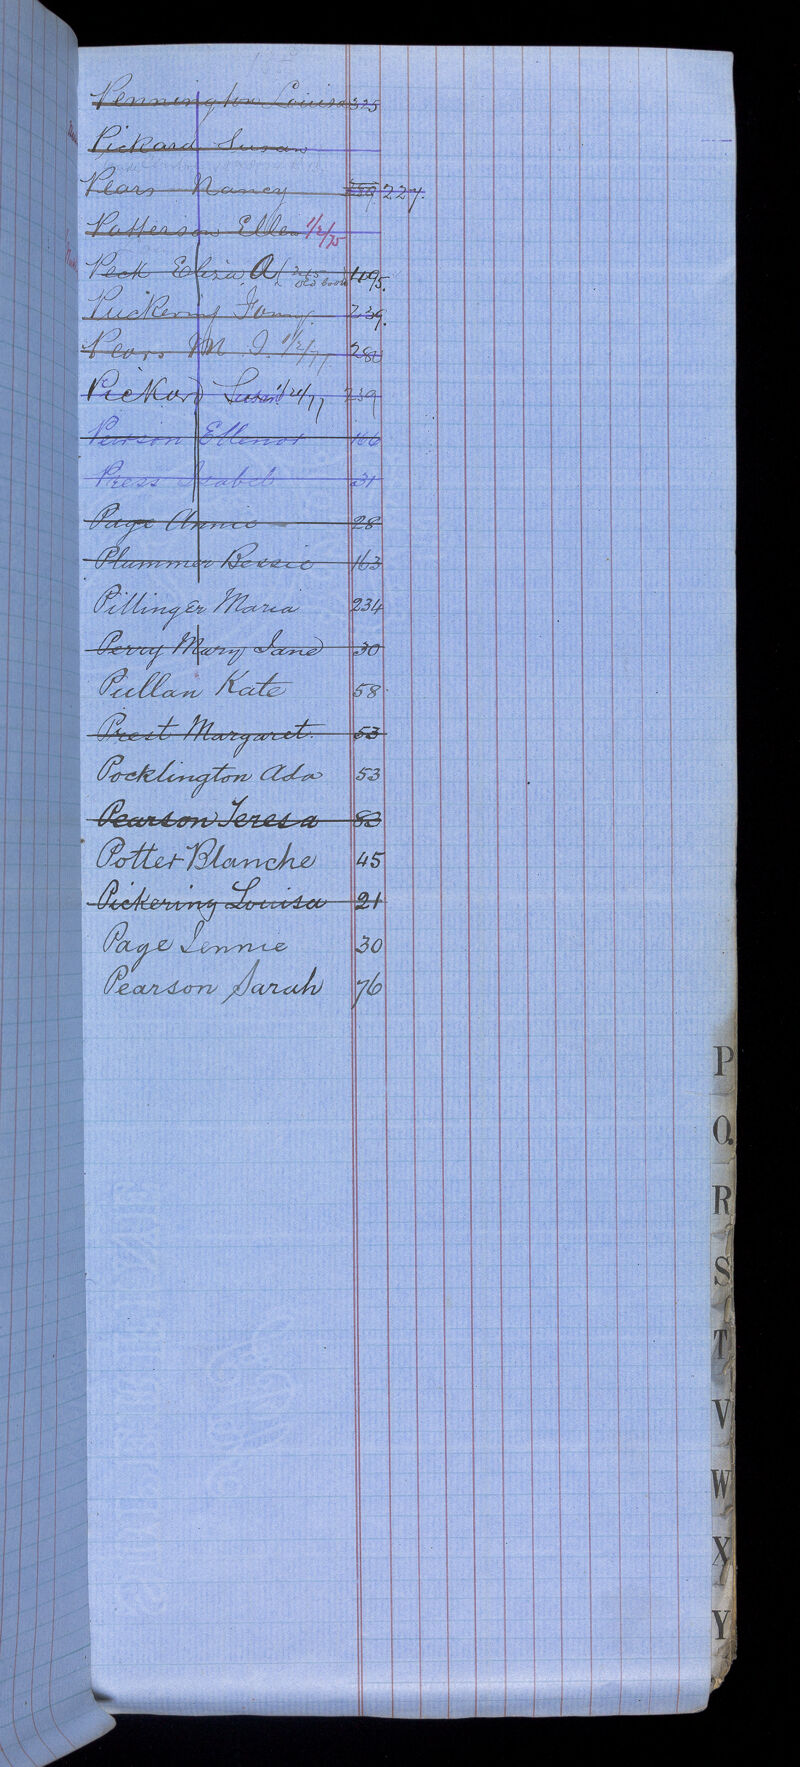 Pennington Louisa 325
Pickard Susan
Pears Nancy 239 227.
Patterson Ellen 1/2/75
Peck Eliza A 265 old book 1195.
Puckering Fanny 239.
Pears M. J. 1/2/77 280
Pickard Susan 1/24/77 239
Pearson Ellenor 166
Press Isabel 31
Page Annie 28
Plummer Bessie 163
Pillinger Maria 234
Perry Mary Jane 30
Pullan Kate 58
Prest Margaret. 53
Pocklington Ada 53
Pearson Teresa 83
Potter Blanche 45
Pickering Louisa 21
Page Jennie 30
Pearson Sarah 76
P
Q.
R
S
T
V
W
X
Y